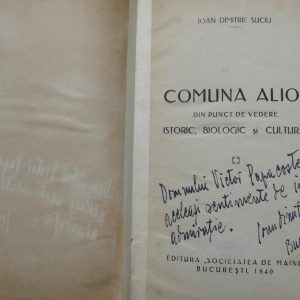 IOAN DIMITRIE SUCIU
COMUNA ALIO
DIN PUNCT DE VEDERE
ISTORIC, BIOLOGIC și CULTURA
Domnului Victor Papacoste
aceleași sentimente de
admirație.
EDITURA „SOCIETATEA DE MAINE
BUCUREȘTI, 1940